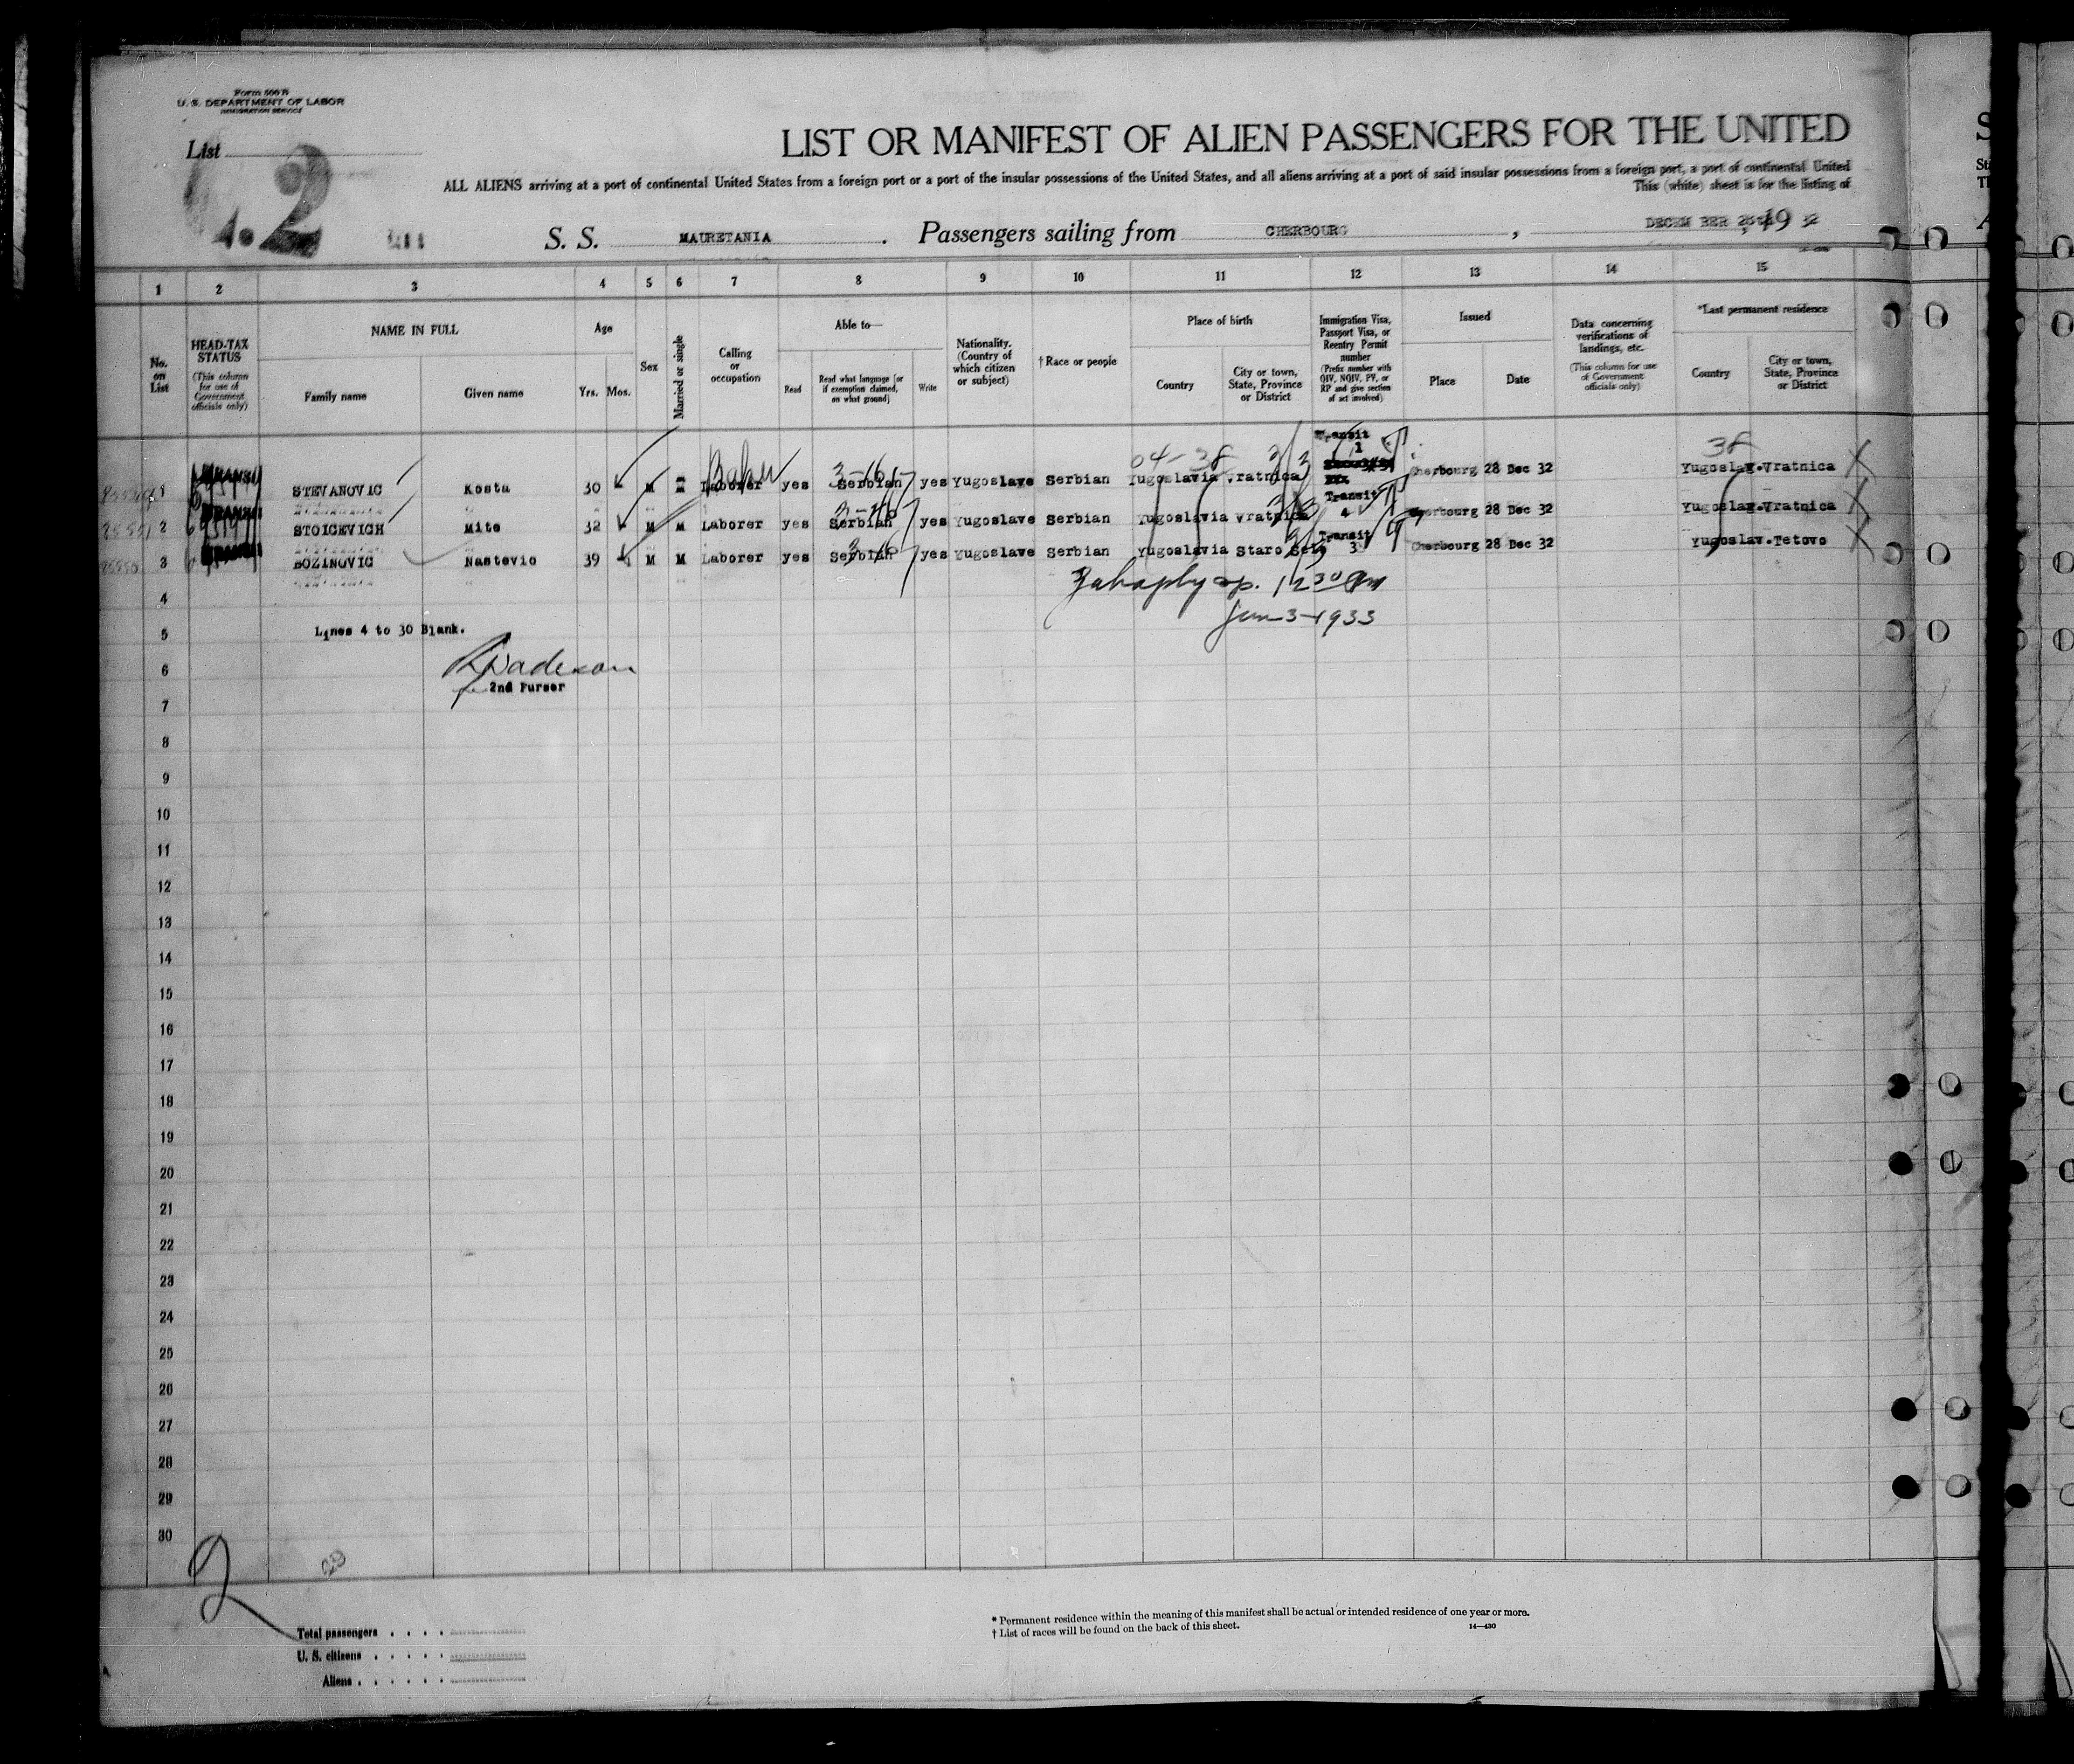 Form 500 B
U. S. DEPARTMENT OF LABOR
IMMIGRATION SERVICE
List
2
LIST OR MANIFEST OF ALIEN PASSENGERS FOR THE UNITED
ALL ALIENS arriving at a port of continental United States from a foreign port or a port of the insular possessions of the United States, and all aliens arriving at a port of said insular possessions from a foreign port, a port of continental United
This (white) sheet is for the listing of
S. S. MAURETANIA. Passengers sailing from CHERBOURG, DECEM BER 19 32
1 2 3 4 5 6 7 8 9 10 11 12 13 14 15
No. on List
HEAD-TAX STATUS
(This column for use of Government officials only)
NAME IN FULL
Family name Given name
Age
Yrs. Mos.
Sex
Married or single
Calling or occupation
Able to—
Read Read what language [or if exemption claimed, on what ground] Write
Nationality. (Country of which citizen or subject)
†Race or people
Place of birth
Country City or town, State, Province or District
Immigration Visa, Passport Visa, or Reentry Permit number
(Prefix number with QIV, NQIV, PV, or RP and give section of act involved)
Issued
Place Date
Data concerning verifications of landings, etc.
(This column for use of Government officials only)
*Last permanent residence
Country City or town, State, Province or District
04-38 38
Baker 3-16
Transit 1
1 STEVANOVIC Kosta 30 M M Laborer yes Serbian yes Yugoslave Serbian Yugoslavia Vratnica Cherbourg 28 Dec 32 Yugoslav. Vratnica
2 STOICEVICH Mite 32 M M Laborer yes Serbian yes Yugoslave Serbian Yugoslavia Vratnica Transit 4 Cherbourg 28 Dec 32 Yugoslav. Vratnica
3 BOZINOVIC Nastevio 39 M M Laborer yes Serbian yes Yugoslave Serbian Yugoslavia Staro Selo Transit 3 Cherbourg 28 Dec 32 Yugoslav. Tetovo
12 30 am
4
Jan-3-1933
5 Lines 4 to 30 Blank.
6
2nd Purser
7
8
9
10
11
12
13
14
15
16
17
18
19
20
21
22
23
24
25
26
27
28
29
30
2
Total passengers
U. S. citizens
Aliens
* Permanent residence within the meaning of this manifest shall be actual or intended residence of one year or more.
† List of races will be found on the back of this sheet.
14—430